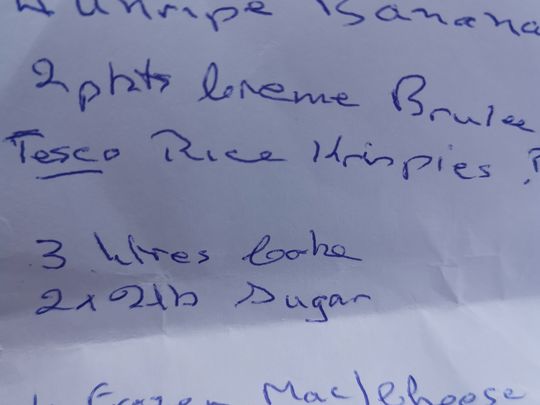 Unripe Banana
2 pkts Creme Brulee
Tesco Rice Krispies ?
3 litres Coke
2 x 2lb Sugar
Frozen Mac/Cheese